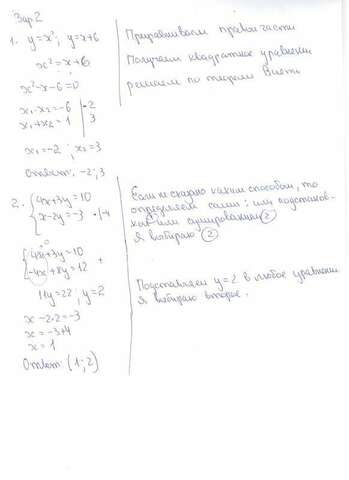 Вар 2
1. y=x²; y=x+6
x²=x+6
x²-x-6=0
x₁·x₂=-6 | -2
x₁+x₂=1 | 3
x₁=-2; x₂=3
Ответ: -2; 3
Приравниваем правые части
Получаем квадратное уравнение
решаем по теореме Виета
2. {4x+3y=10
x-2y=-3 |·(-4
{4x+3y=10
-4x+8y=12 +
11y=22; y=2
x-2·2=-3
x=-3+4
x=1
Ответ: (1; 2)
Если не сказано каким способом, то
определяем сами: или подстанов-
кой или суммированием ②
Я выбираю ②
Подставляем y=2 в любое уравнение
Я выбираю второе.